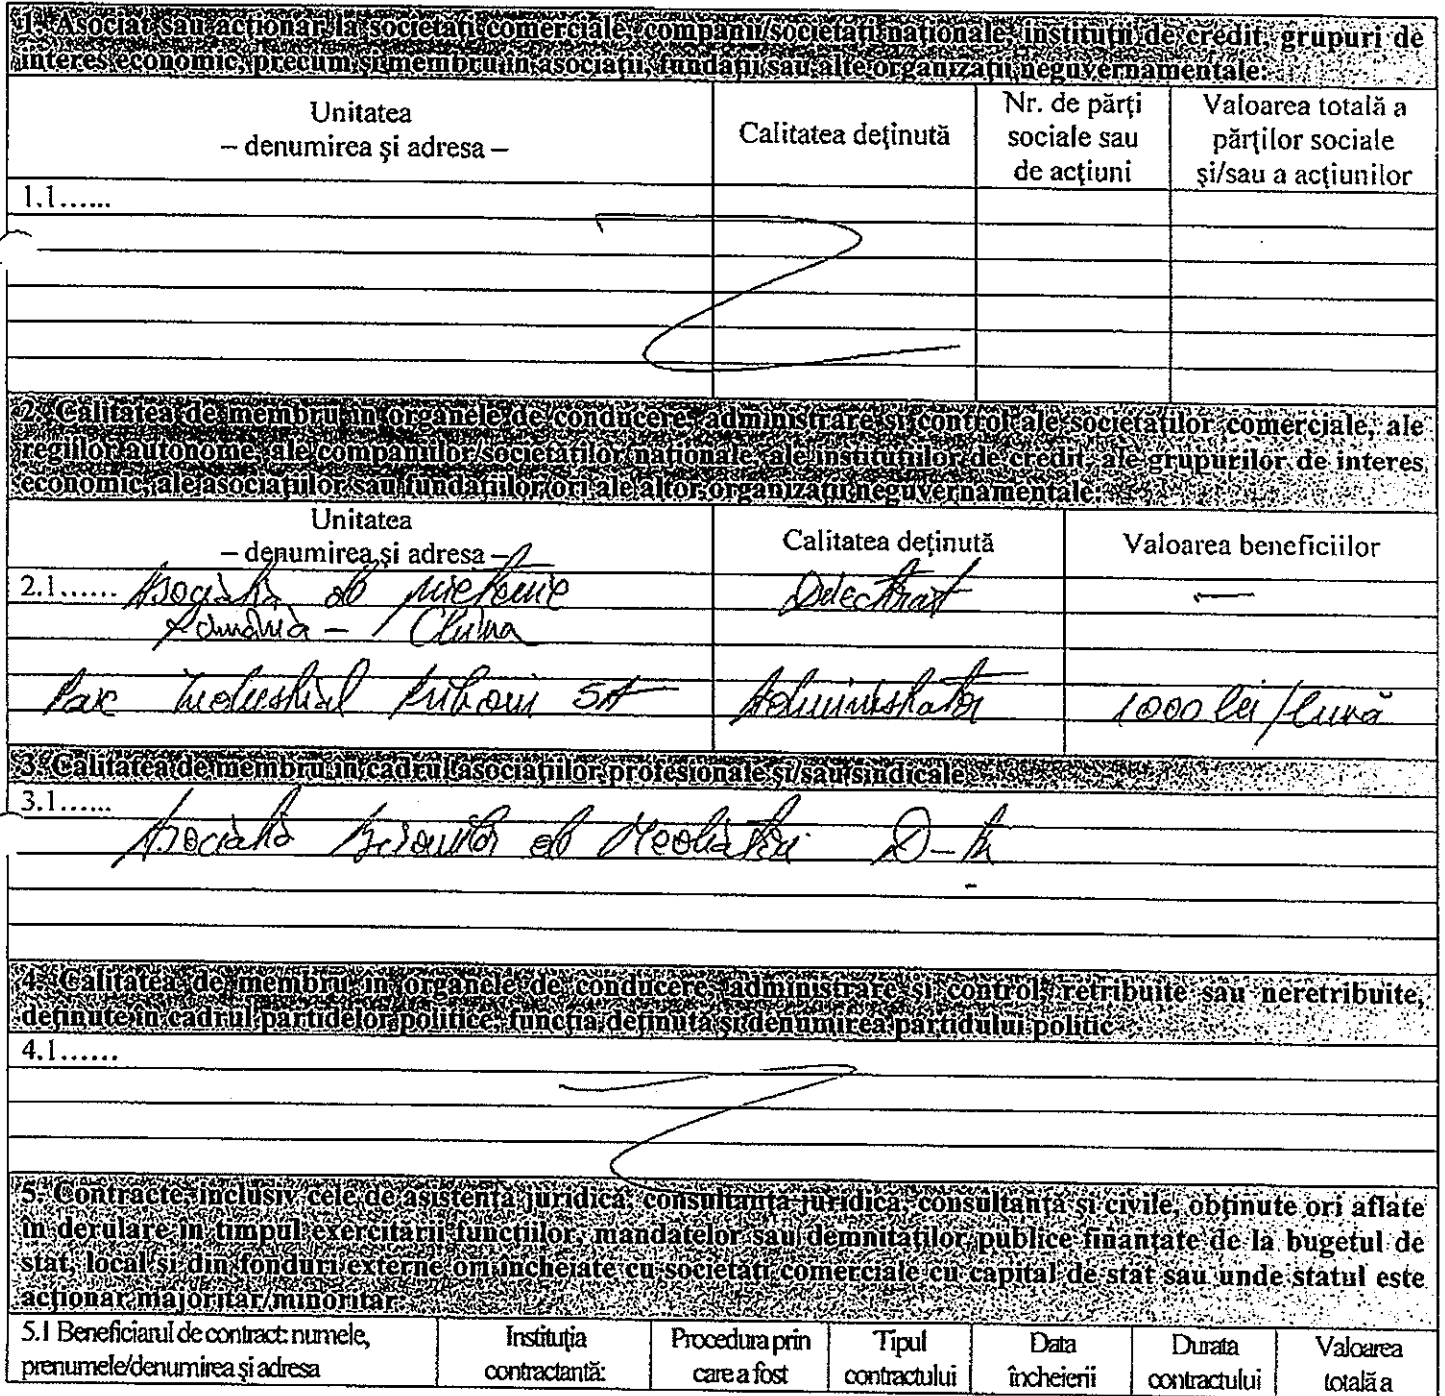 1. Asociat sau acționar la societăți comerciale, companii/societăți naționale, instituții de credit, grupuri de
interes economic, precum și membru în asociații, fundații sau alte organizații neguvernamentale:
Unitatea
– denumirea și adresa –
Calitatea deținută
Nr. de părți
sociale sau
de acțiuni
Valoarea totală a
părților sociale
și/sau a acțiunilor
1.1......
2. Calitatea de membru în organele de conducere, administrare și control ale societăților comerciale, ale
regiilor autonome, ale companiilor/societăților naționale, ale instituțiilor de credit, ale grupurilor de interes
economic, ale asociațiilor sau fundațiilor ori ale altor organizații neguvernamentale:
Unitatea
– denumirea și adresa –
Calitatea deținută
Valoarea beneficiilor
2.1...... Asociația de prietenie
România – China
—
Parc Industrial SA
Administrator
1000 lei/lună
3. Calitatea de membru în cadrul asociațiilor profesionale și/sau sindicale
3.1......
Asociația Birourilor de Mediatori
4. Calitatea de membru în organele de conducere, administrare și control, retribuite sau neretribuite,
deținute în cadrul partidelor politice, funcția deținută și denumirea partidului politic
4.1......
5. Contracte, inclusiv cele de asistență juridică, consultanță juridică, consultanță și civile, obținute ori aflate
în derulare în timpul exercitării funcțiilor, mandatelor sau demnităților publice finanțate de la bugetul de
stat, local și din fonduri externe ori încheiate cu societăți comerciale cu capital de stat sau unde statul este
acționar majoritar/minoritar:
5.1 Beneficiarul de contract: numele,
prenumele/denumirea și adresa
Instituția
contractantă:
Procedura prin
care a fost
Tipul
contractului
Data
încheierii
Durata
contractului
Valoarea
totală a